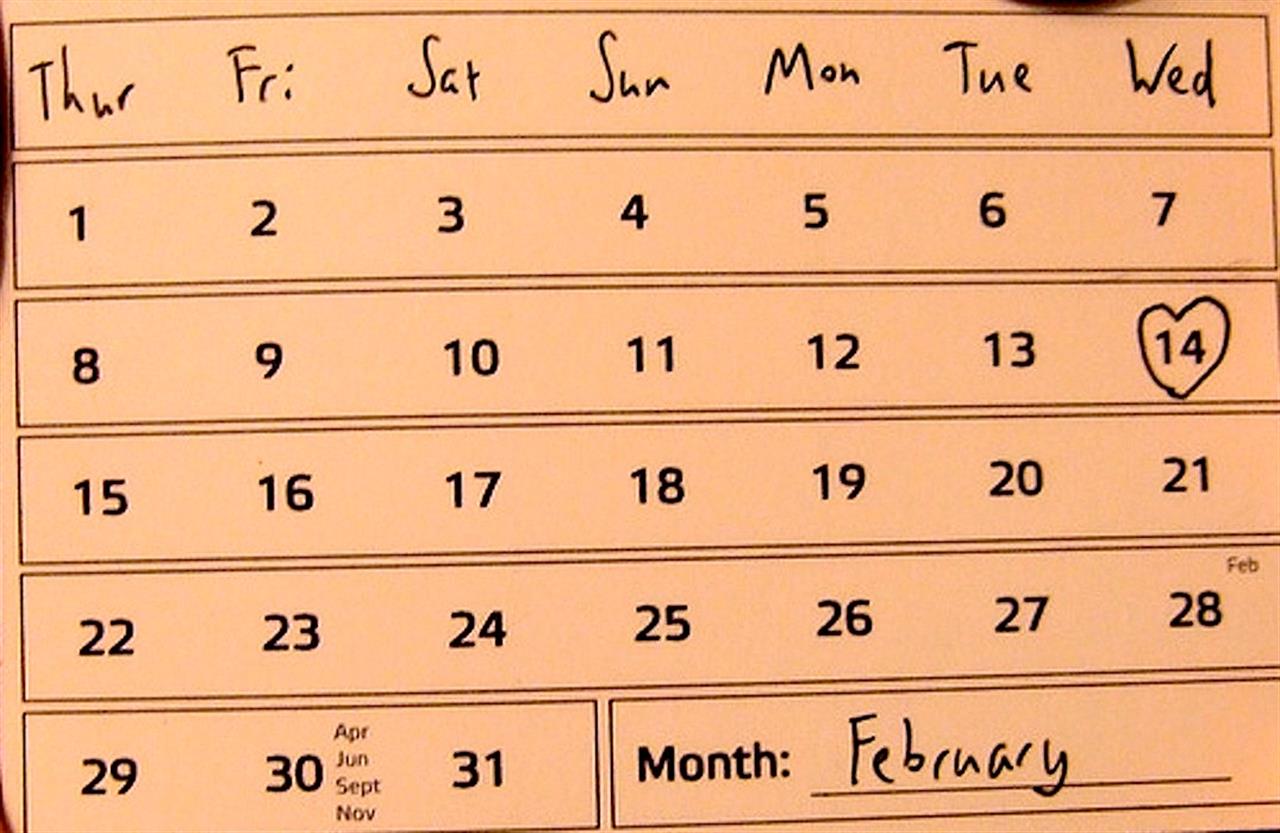 Thur Fri Sat Sun Mon Tue Wed
1 2 3 4 5 6 7
8 9 10 11 12 13 14
15 16 17 18 19 20 21
Feb
22 23 24 25 26 27 28
29 30 Apr Jun Sept Nov 31
Month: February